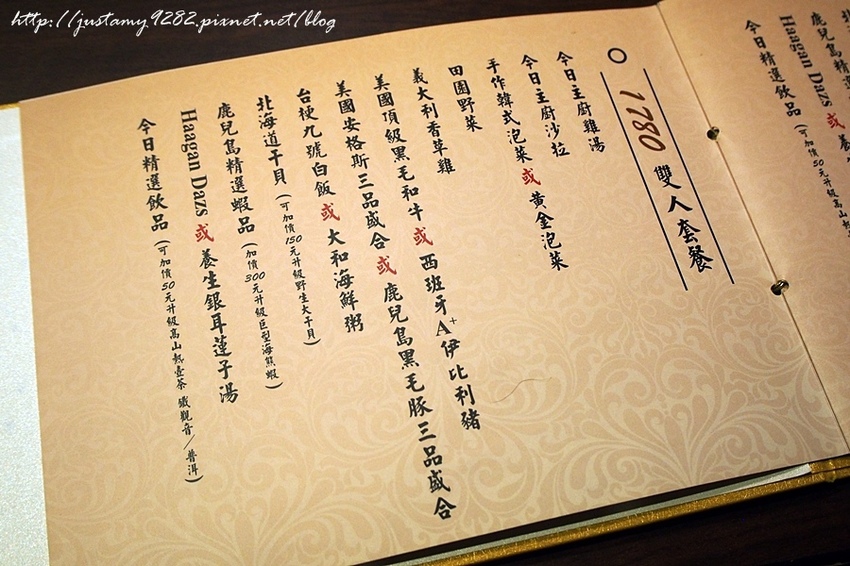 http://justamy9282.pixnet.net/blog
北海
鹿兒島精選
Haagan Dazs 或 養
今日精選飲品(可加價50元升級高山
1780 雙人套餐
今日主廚雞湯
今日主廚沙拉
手作韓式泡菜 或 黃金泡菜
田園野菜
義大利香草雞
美國頂級黑毛和牛 或 西班牙A+伊比利豬
美國安格斯三品盛合 或 鹿兒島黑毛豚三品盛合
台梗九號白飯 或 大和海鮮粥
北海道干貝(可加價150元升級野生大干貝)
鹿兒島精選蝦品(加價300元升級巨型海熊蝦)
Haagan Dazs 或 養生銀耳蓮子湯
今日精選飲品(可加價50元升級高山熱壺茶 鐵觀音/普洱)